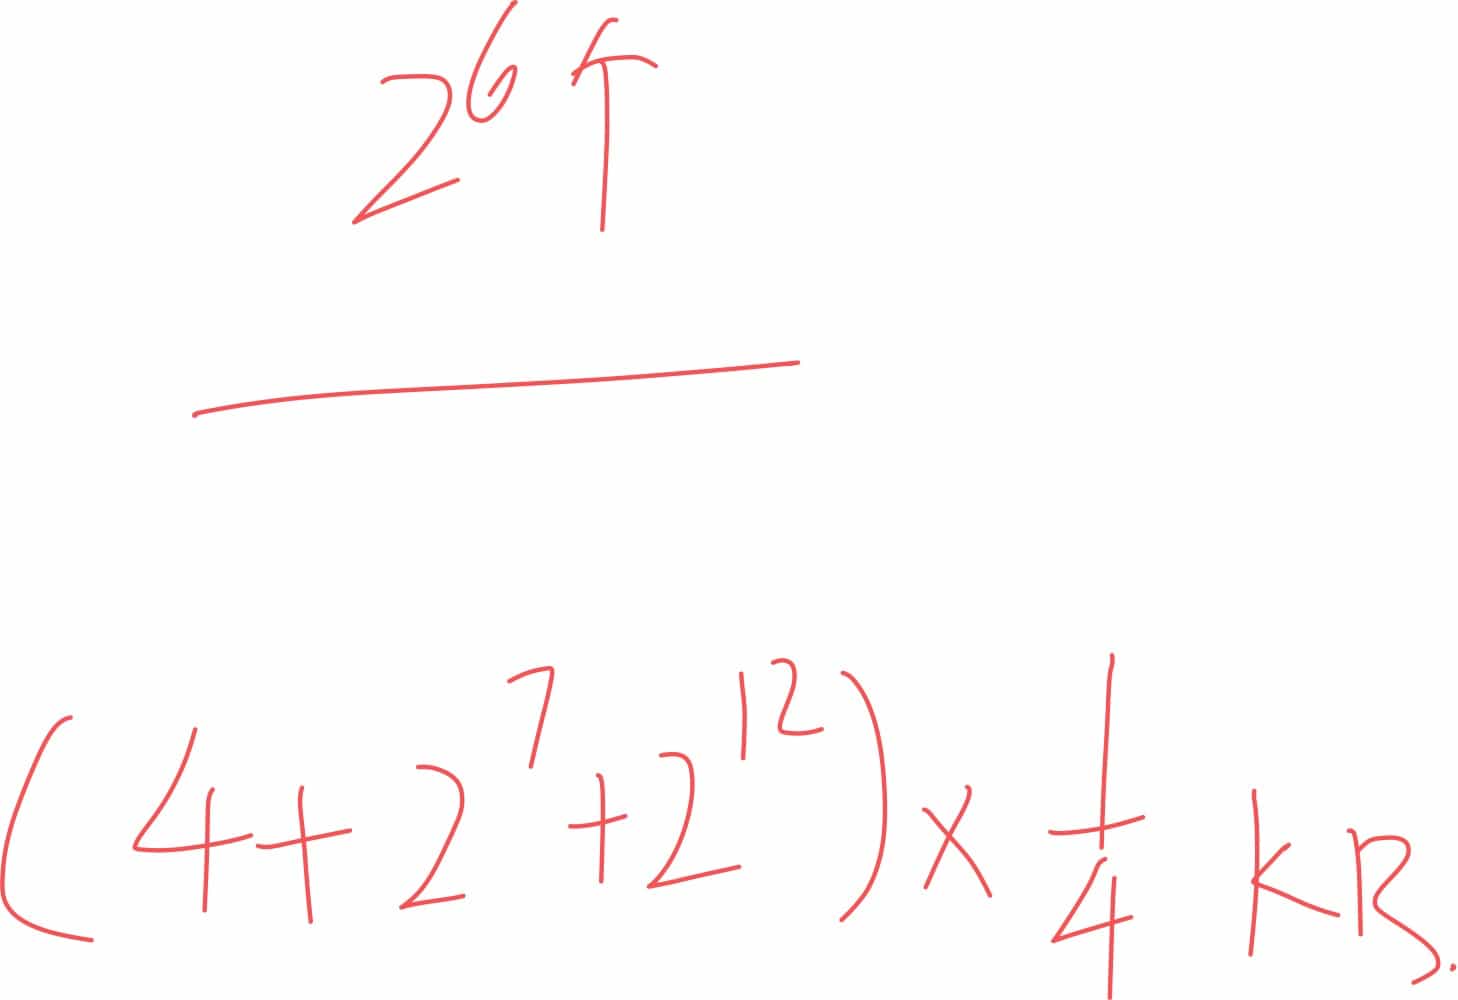 2⁶个
(4+2⁷+2¹²)×1/4 KB.